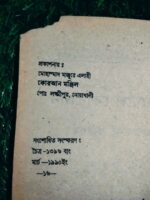 প্রকাশনায় :
মোহাম্মদ মঞ্জুর এলাহী
কোরআন মঞ্জিল
পোঃ লক্ষ্মীপুর, নোয়াখালী
সংশোধিত সংস্করণ :
চৈত্র -১৩৯৬ বাং
মার্চ —১৯৯০ইং
—১৬—